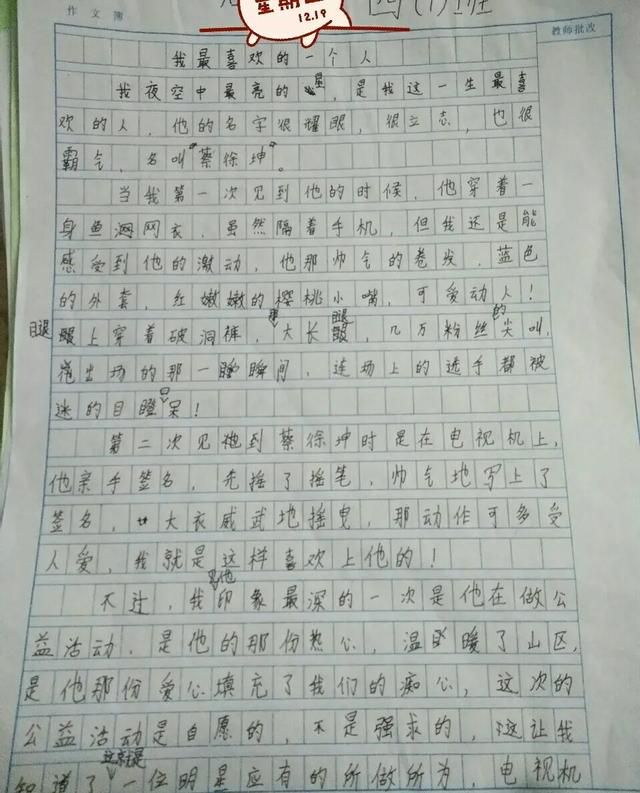 作文簿
星期四
12.19
四(1)班
教师批改
我最喜欢的一个人
我夜空中最亮的星，是我这一生最喜
欢的人，他的名字很耀眼，很立志，也很
霸气，名叫"蔡徐坤"。
当我第一次见到他的时候，他穿着一
身鱼网衣，虽然隔着手机，但我还是能
感受到他的激动，他那帅气的卷发，蓝色
的外套，红嫩嫩的樱桃小嘴，可爱动人！
腿上穿着破洞裤，那大长腿，几万粉丝的尖叫，
他出场的那一瞬间，连场上的选手都被
迷的目瞪口呆！
第二次见到蔡徐坤时是在电视机上，
他亲手签名，先摇了摇笔，帅气地写上了
签名，大衣威武地摇曳，那动作可多受
人爱，我就是这样喜欢上他的！
不过，我见他印象最深的一次是他在做公
益活动，是他的那份热心，温暖了山区，
是他那份爱心填充了我们的痴心，这次的
公益活动是自愿的，不是强求的，这让我
知道了这就是一位明星应有的所做所为，电视机